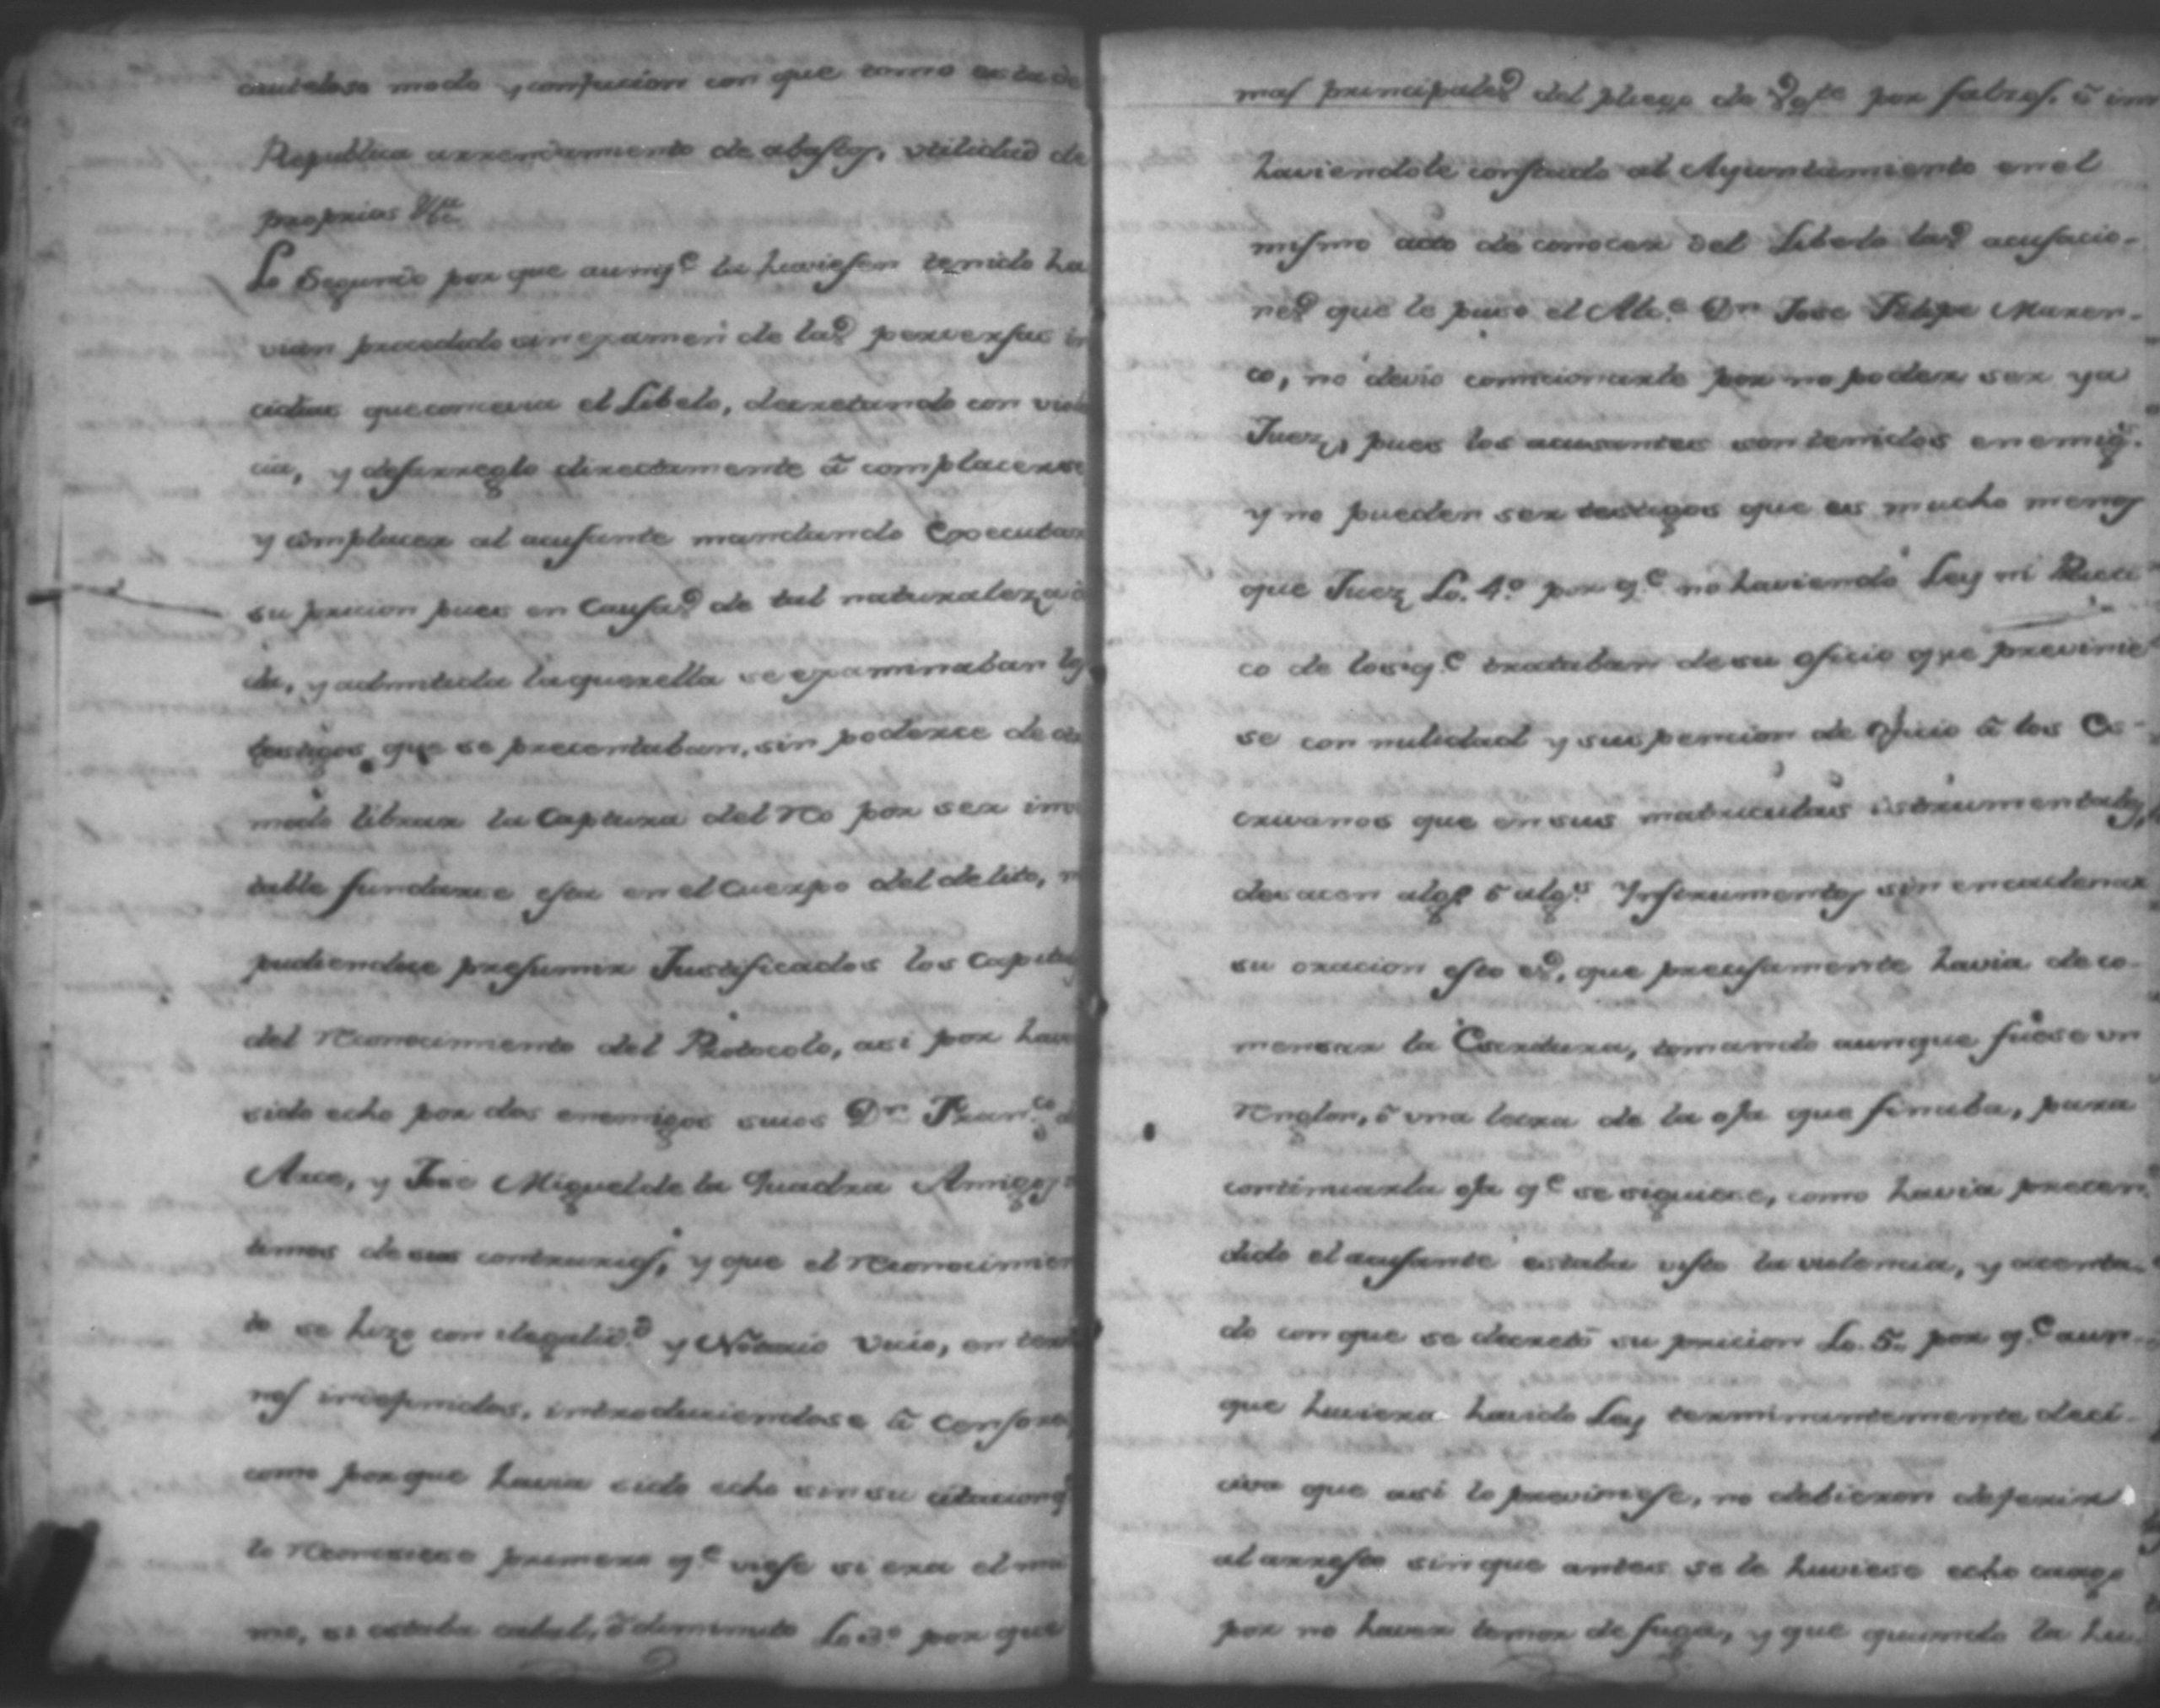 cauteloso modo y confucion con que como esta de
Republica arrendamiento de abastos, utilidad de
proprios &ta
Lo Segundo por que aunq.e la huviesen tenido ha
vian procedido sin examen de las perversas
que contenia el Libelo, decretando con viole
cia, y desarreglo directamente â complacerse
y complacer al acusante mandando Executar
su pricion pues en Causas de tal naturaleza
da, y admitida la querella se examinaban los
testigos que se precentaban, sin poderse de
modo librar la Captura del reo por ser
table fundarse esta en el Cuerpo del delito, n
pudiendose presumir Justificados los Capitu
del reconocimiento del Protocolo, asi por have
sido echo por dos enemigos suios Dn. Fran.co d
Arce, y Jose Miguel de la Quadra Amigos
timos de sus contrarios, y que el reconocimien
to se hizo con ilegalid.d y Notario Vicio, en
nos indefinidos, introduciendose â Censores
como por que havia sido echo sin su citacion q
lo reconociese primero q.e viese si era el mis
mo, si estaba cabal, ô deminuto Lo 3.o por que
mas principales del pliego de por falsos. ô
haviendole constado al Ayuntamiento en el
mismo acto de conocer del Libelo las acusacio-
nes que le puso el Alc.e Dn Jose Felipe Maren-
co, no devio comicionarle por no poder ser ya
Juez, pues los acusantes son tenidos enemig.s
y no pueden ser testigos que es mucho menos
que Juez Lo. 4.o por q.e no haviendo Ley ni Practi
co de los q.e trataban de su oficio que previnie
se con nulidad y suspencion de oficio â los Es-
crivanos que en sus matriculas istrumentales,
dexacen algo ô alg.s Ynstrumentos sin encadenar
su oracion esto es, que precisamente havia de co-
mensar la Escritura, tomando aunque fuese un
renglon, ô una letra de la oja que finaba, para
continuarla oja q.e se siguiese, como havia preten
dido el acusante estaba visto la violencia, y acenta-
do con que se decretó su pricion Lo. 5.o por q.e aun-
que huviera havido Ley terminantemente deci-
civa que asi lo previniese, no debieron deferir
al arresto sin que antes se le huviese echo cargo
por no haver temor de fuga, y que quando la hu-